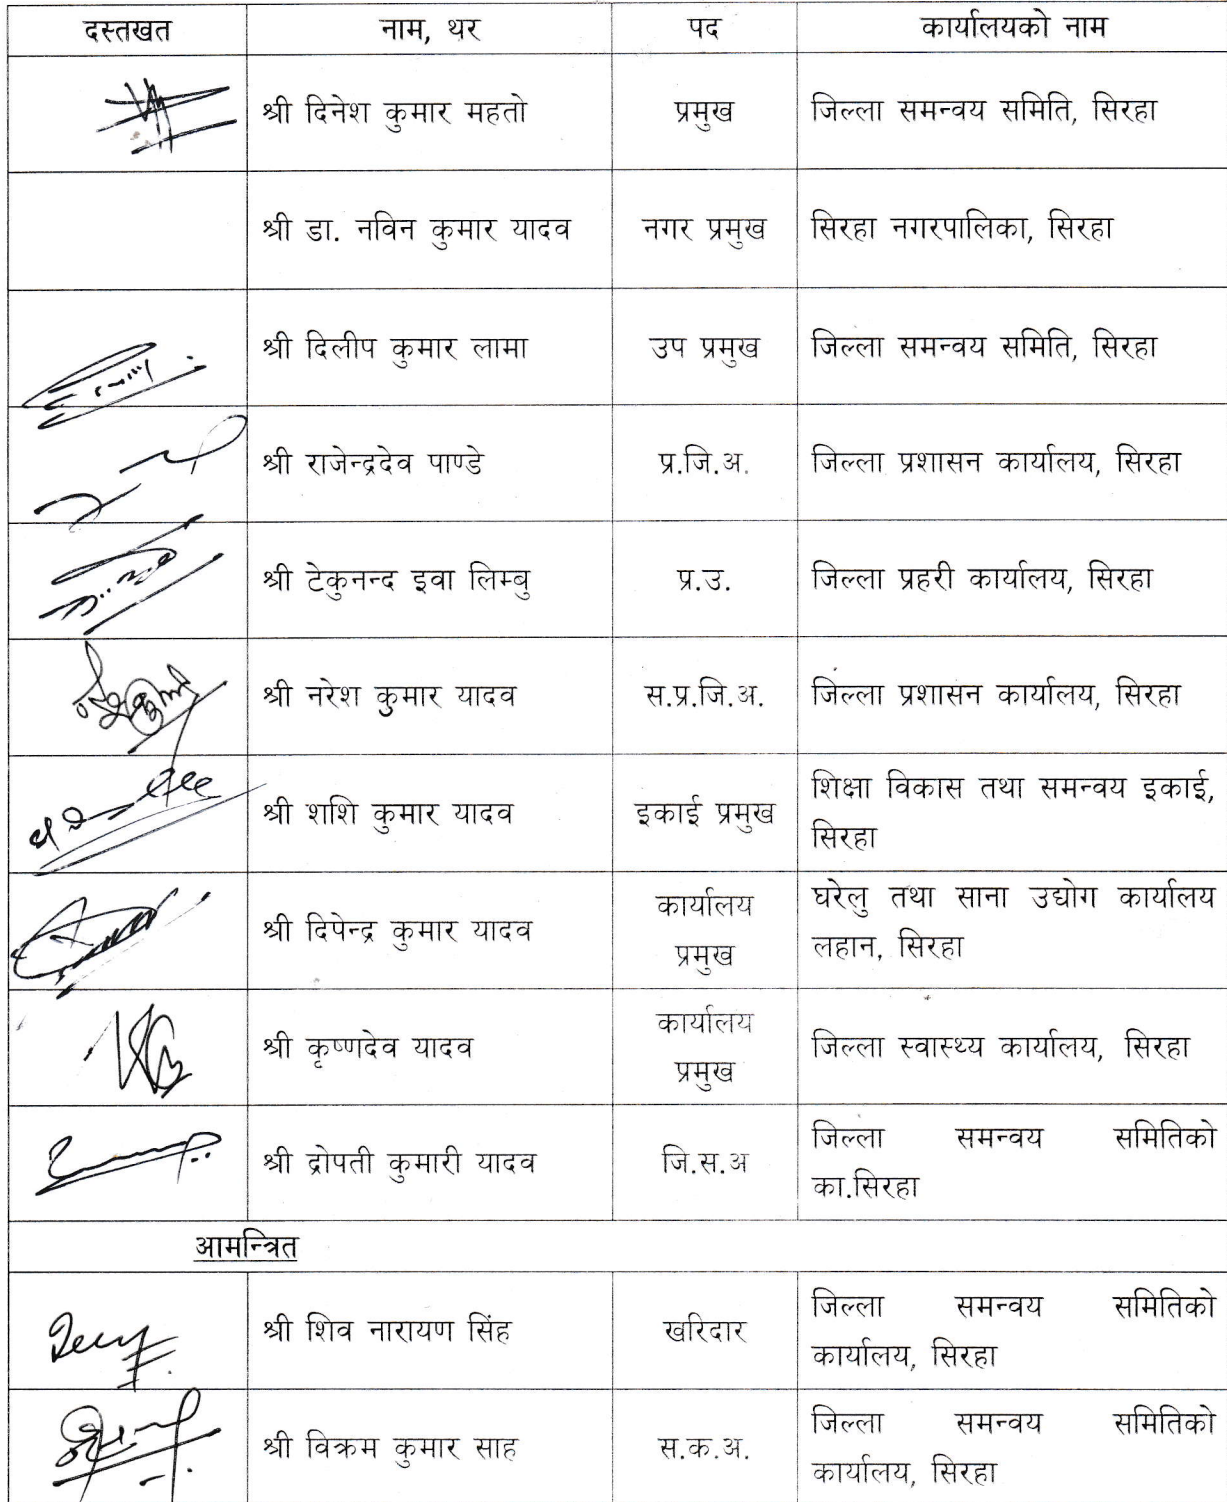 दस्तखत नाम, थर पद कार्यालयको नाम
श्री दिनेश कुमार महतो प्रमुख जिल्ला समन्वय समिति, सिरहा
श्री डा. नविन कुमार यादव नगर प्रमुख सिरहा नगरपालिका, सिरहा
श्री दिलीप कुमार लामा उप प्रमुख जिल्ला समन्वय समिति, सिरहा
श्री राजेन्द्रदेव पाण्डे प्र.जि.अ. जिल्ला प्रशासन कार्यालय, सिरहा
श्री टेकुनन्द इवा लिम्बु प्र.उ. जिल्ला प्रहरी कार्यालय, सिरहा
श्री नरेश कुमार यादव स.प्र.जि.अ. जिल्ला प्रशासन कार्यालय, सिरहा
श्री शशि कुमार यादव इकाई प्रमुख शिक्षा विकास तथा समन्वय इकाई,
सिरहा
श्री दिपेन्द्र कुमार यादव कार्यालय
प्रमुख घरेलु तथा साना उद्योग कार्यालय
लहान, सिरहा
श्री कृष्णदेव यादव कार्यालय
प्रमुख जिल्ला स्वास्थ्य कार्यालय, सिरहा
श्री द्रोपती कुमारी यादव जि.स.अ जिल्ला समन्वय समितिको
का.सिरहा
आमन्त्रित
श्री शिव नारायण सिंह खरिदार जिल्ला समन्वय समितिको
कार्यालय, सिरहा
श्री विक्रम कुमार साह स.क.अ. जिल्ला समन्वय समितिको
कार्यालय, सिरहा